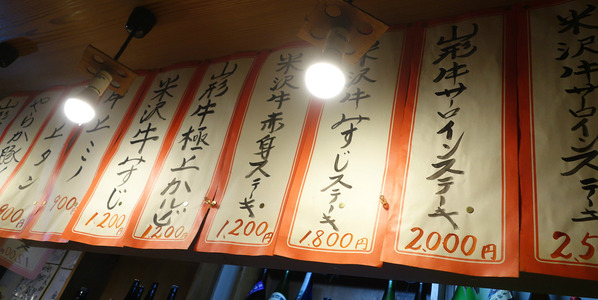 米沢牛サーロインステーキ
2,5
山形牛サーロインステーキ
2,000円
米沢牛みすじステーキ
1,800円
米沢牛赤身ステーキ
1,200円
山形牛極上カルビ
1200円
米沢牛みすじ
1200
牛上ミノ
900
上タン
900